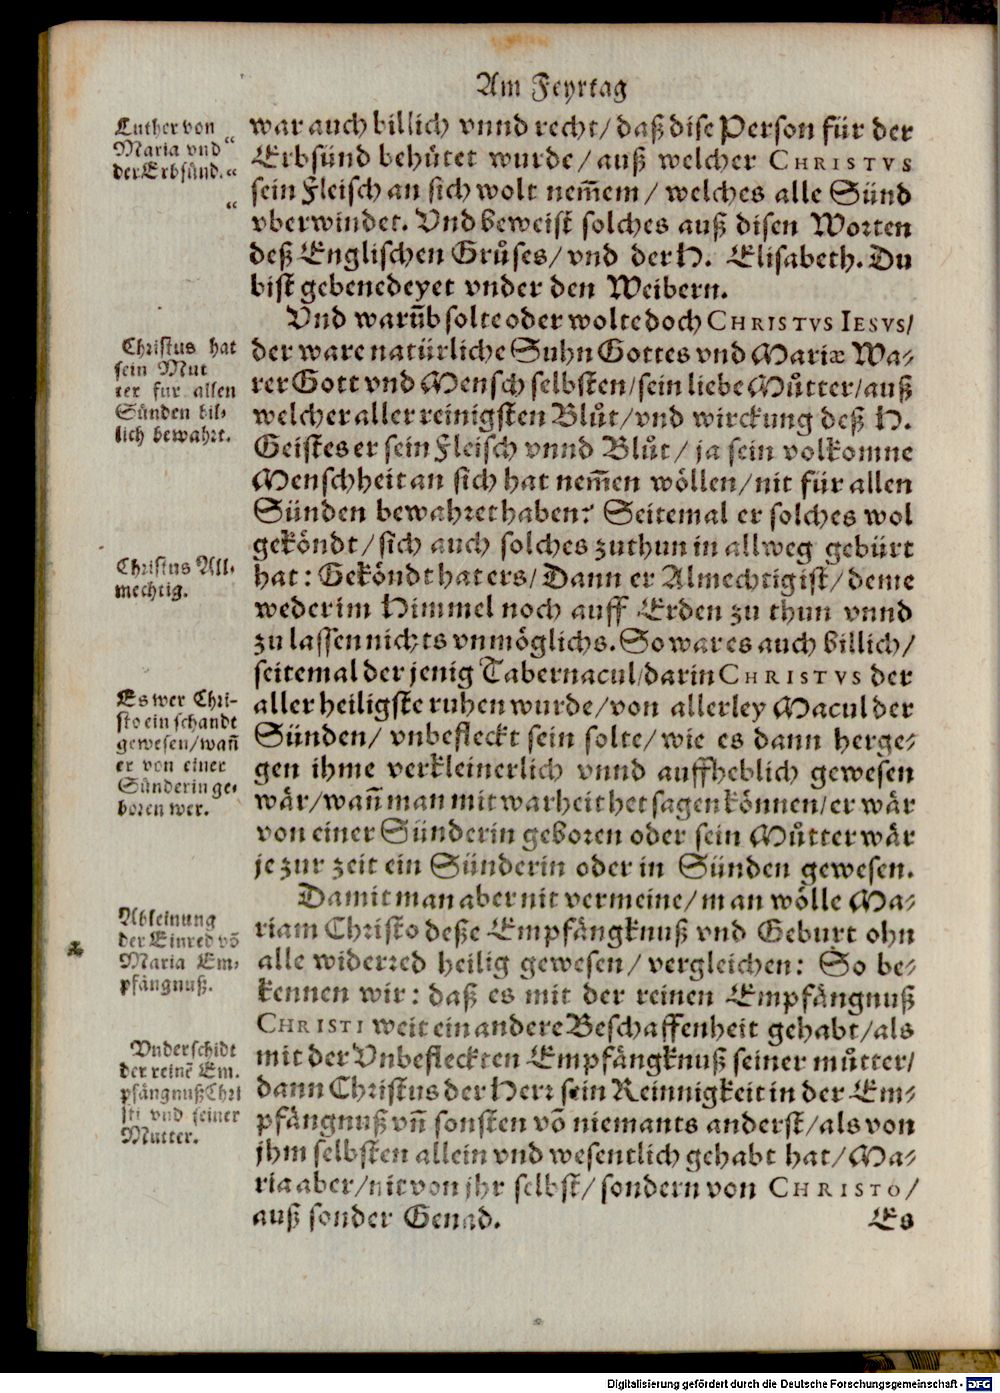 Am Feyrtag
Luther von
Maria vnd “
der Erbsünd. “
“
war auch billich vnnd recht/ daß dise Person für der
Erbsünd behütet wurde/ auß welcher CHRISTVS
sein Fleisch an sich wolt nem̃em/ welches alle Sünd
vberwindet. Vnd beweist solches auß disen Worten
deß Englischen Grůses/ vnd der H. Elisabeth. Du
bist gebenedeyet vnder den Weibern.
Vnd warũb solte oder wolte doch CHRISTVS IESVS/
Christus hat
sein Mut
ter fur allen
Sünden bil⸗
lich bewahrt.
der ware natürliche Suhn Gottes vnd Mariæ Wa⸗
rer Gott vnd Mensch selbsten/ sein liebe Můtter/ auß
welcher aller reinigsten Blůt/ vnd wirckung deß H.
Geistes er sein Fleisch vnnd Blůt/ ja sein volkomne
Menschheit an sich hat nem̃en wöllen/ nit für allen
Sünden bewahret haben? Seitemal er solches wol
geköndt/ sich auch solches zuthun in allweg gebürt
Christus All⸗
mechtig.
hat: Geköndt hat ers/ Dann er Almechtig ist/ deme
weder im Himmel noch auff Erden zu thun vnnd
zu lassen nichts vnmöglichs. So war es auch billich/
seitemal der jenig Tabernacul/ darin CHRISTVS der
Es wer Chri-
sto ein schandt
gewesen/ wañ
er von einer
Sünderin ge⸗
boren wer.
aller heiligste ruhen wurde/ von allerley Macul der
Sünden/ vnbefleckt sein solte/ wie es dann herge⸗
gen ihme verkleinerlich vnnd auffheblich gewesen
wär/ wañ man mit warheit het sagen können/ er wär
von einer Sünderin geboren oder sein Můtter wär
je zur zeit ein Sünderin oder in Sünden gewesen.
Damit man aber nit vermeine/ man wölle Ma⸗
Ableinung
der Einred võ
Maria Em⸗
pfängnuß.
riam Christo deße Empfängknuß vnd Geburt ohn
alle widerred heilig gewesen/ vergleichen: So be⸗
kennen wir: daß es mit der reinen Empfängnuß
CHRISTI weit ein andere Beschaffenheit gehabt/ als
Vnderschidt
der reinẽ Em.
pfängnuß Chri
sti vnd seiner
Mutter.
mit der Vnbefleckten Empfängknuß seiner můtter/
dann Christus der Herr sein Reinnigkeit in der Em⸗
pfängnuß vñ sonsten võ niemants anderst/ als von
jhm selbsten allein vnd wesentlich gehabt hat/ Ma⸗
ria aber/ nit von jhr selbst/ sondern von CHRISTO/
auß sonder Genad.
Es
Digitalisierung gefördert durch die Deutsche Forschungsgemeinschaft - DFG